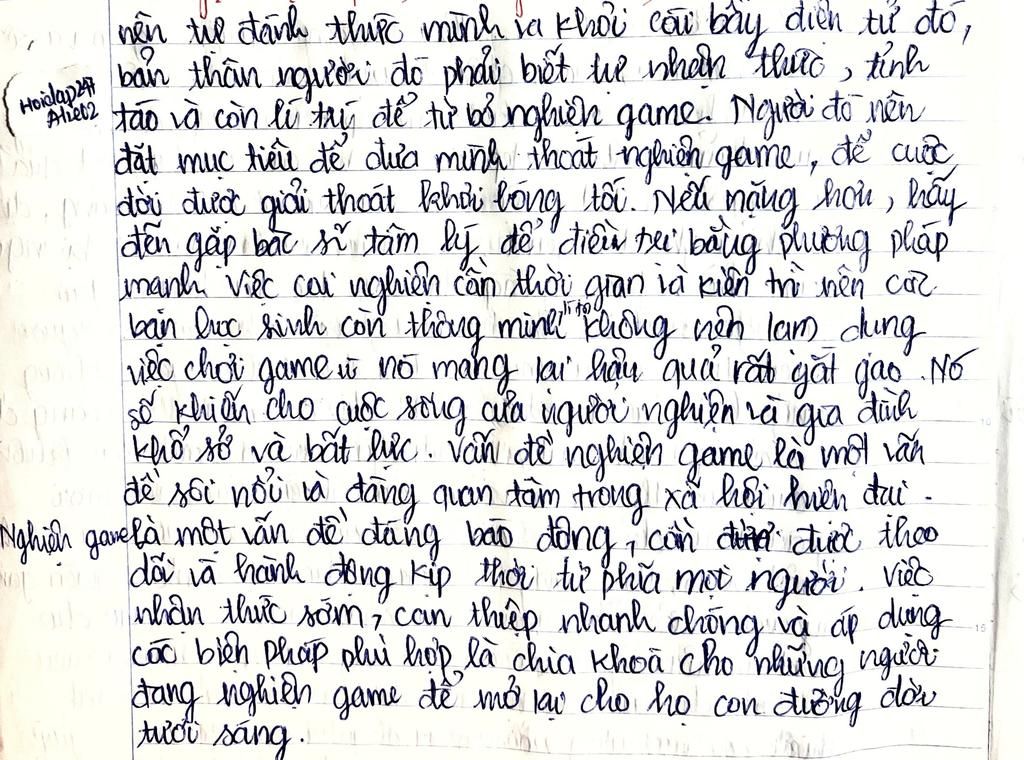 nên tự đánh thức mình ra khỏi cái bẫy điện tử đó,
bản thân người đó phải biết tự nhận thức, tỉnh
Hoidap247
Alie02
táo và còn lý trí để từ bỏ nghiện game. Người đó nên
đặt mục tiêu để đưa mình thoát nghiện game, để cuộc
đời được giải thoát khỏi bóng tối. Nếu nặng hơn, hãy
đến gặp bác sĩ tâm lý để điều trị bằng phương pháp
mạnh. Việc cai nghiện cần thời gian và kiên trì nên các
bạn học sinh còn thông minh lí trí không nên lạm dụng
việc chơi game vì nó mang lại hậu quả rất gắt gao. Nó
sẽ khiến cho cuộc sống của người nghiện và gia đình
khổ sở và bất lực. Vấn đề nghiện game là một vấn
đề sôi nổi và đáng quan tâm trong xã hội hiện đại.
Nghiện game là một vấn đề đáng báo động, cần được theo
dõi và hành động kịp thời từ phía mọi người. Việc
nhận thức sớm, can thiệp nhanh chóng và áp dụng
các biện pháp phù hợp là chìa khoá cho những người
đang nghiện game để mở lại cho họ con đường đời
tươi sáng.